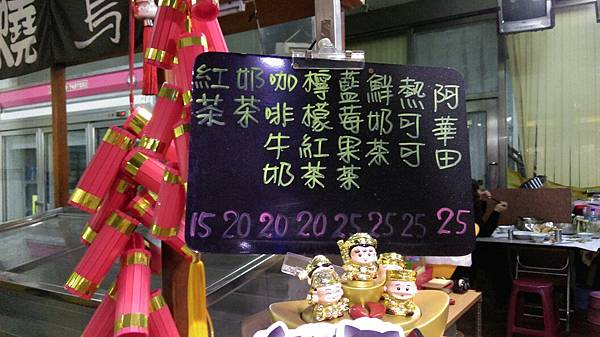 燒
烏
阿華田
熱可可
鮮奶茶
藍莓果茶
檸檬紅茶
咖啡牛奶
奶茶
紅茶
15 20 20 20 25 25 25 25